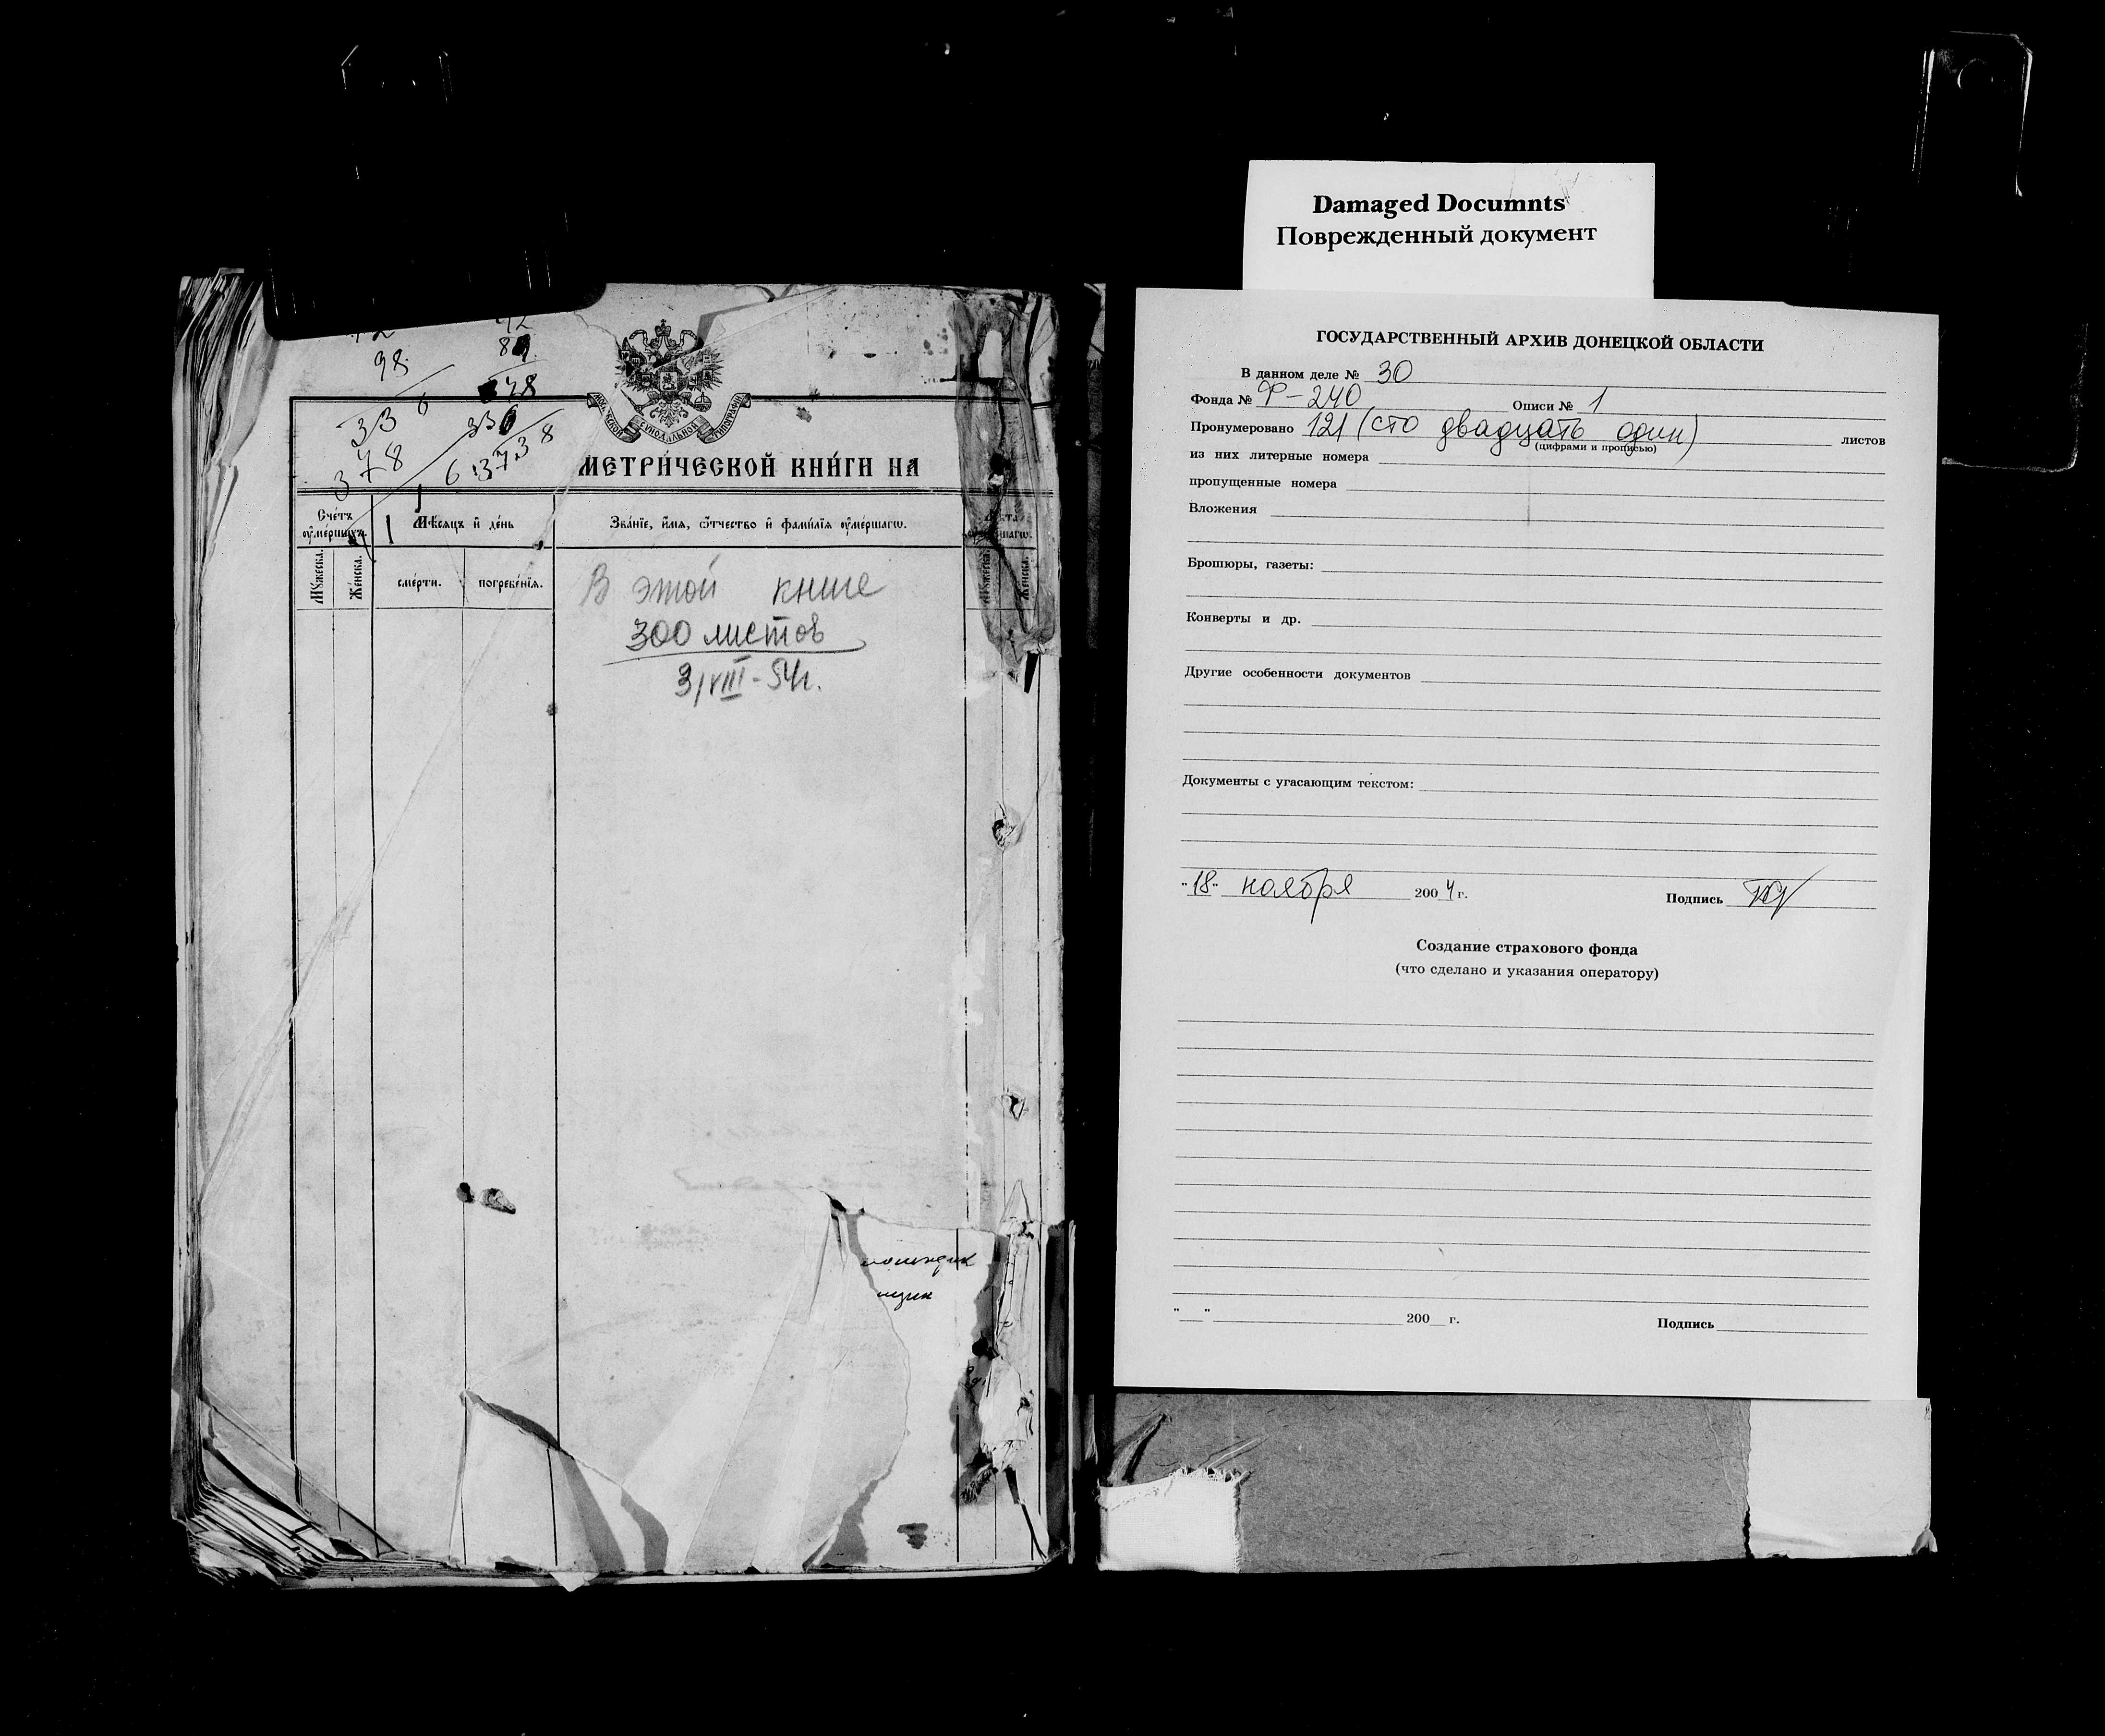 Damaged Documnts
Поврежденный документ
98
33
378
336
6
МЕТРИ́ЧЕСКОЙ КНИ́ГИ НА
Сче́тъ
оуме́ршихъ.
Мѣ́сяцъ и де́нь
Зва́нїе, и́мѧ, ѻ́тчество и фами́лїѧ оуме́ршагѡ.
Мꙋ́жеска.
Же́нска.
сме́рти.
погребе́нїѧ.
Мꙋ́жеска.
Же́нска.
В этой книге
300 листов
3/VIII-54г.
ГОСУДАРСТВЕННЫЙ АРХИВ ДОНЕЦКОЙ ОБЛАСТИ
В данном деле № 30
Фонда № Ф-240 Описи № 1
Пронумеровано 121 (сто двадцать один) листов
(цифрами и прописью)
из них литерные номера
пропущенные номера
Вложения
Брошюры, газеты:
Конверты и др.
Другие особенности документов
Документы с угасающим текстом:
"18" ноября 2004 г. Подпись
Создание страхового фонда
(что сделано и указания оператору)
"__" 200__ г. Подпись